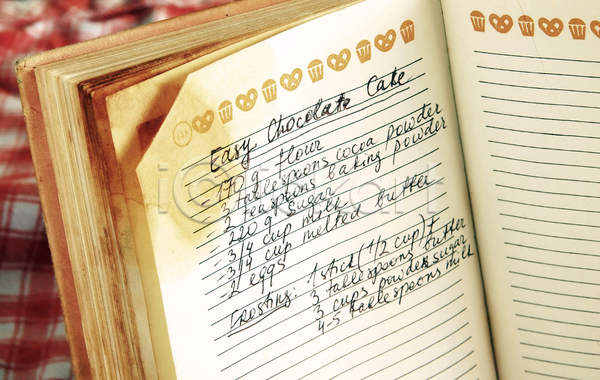 Easy Chocolate Cake
170 g flour
3 tablespoons cocoa powder
2 teaspoons baking powder
- 220 g sugar
- 3/4 cup milk
- 3/4 cup melted butter
- 2 eggs
Frosting: 1 stick (1/2 cup) +
3 tablespoons butter
3 cups powder sugar
4-5 tablespoons milk